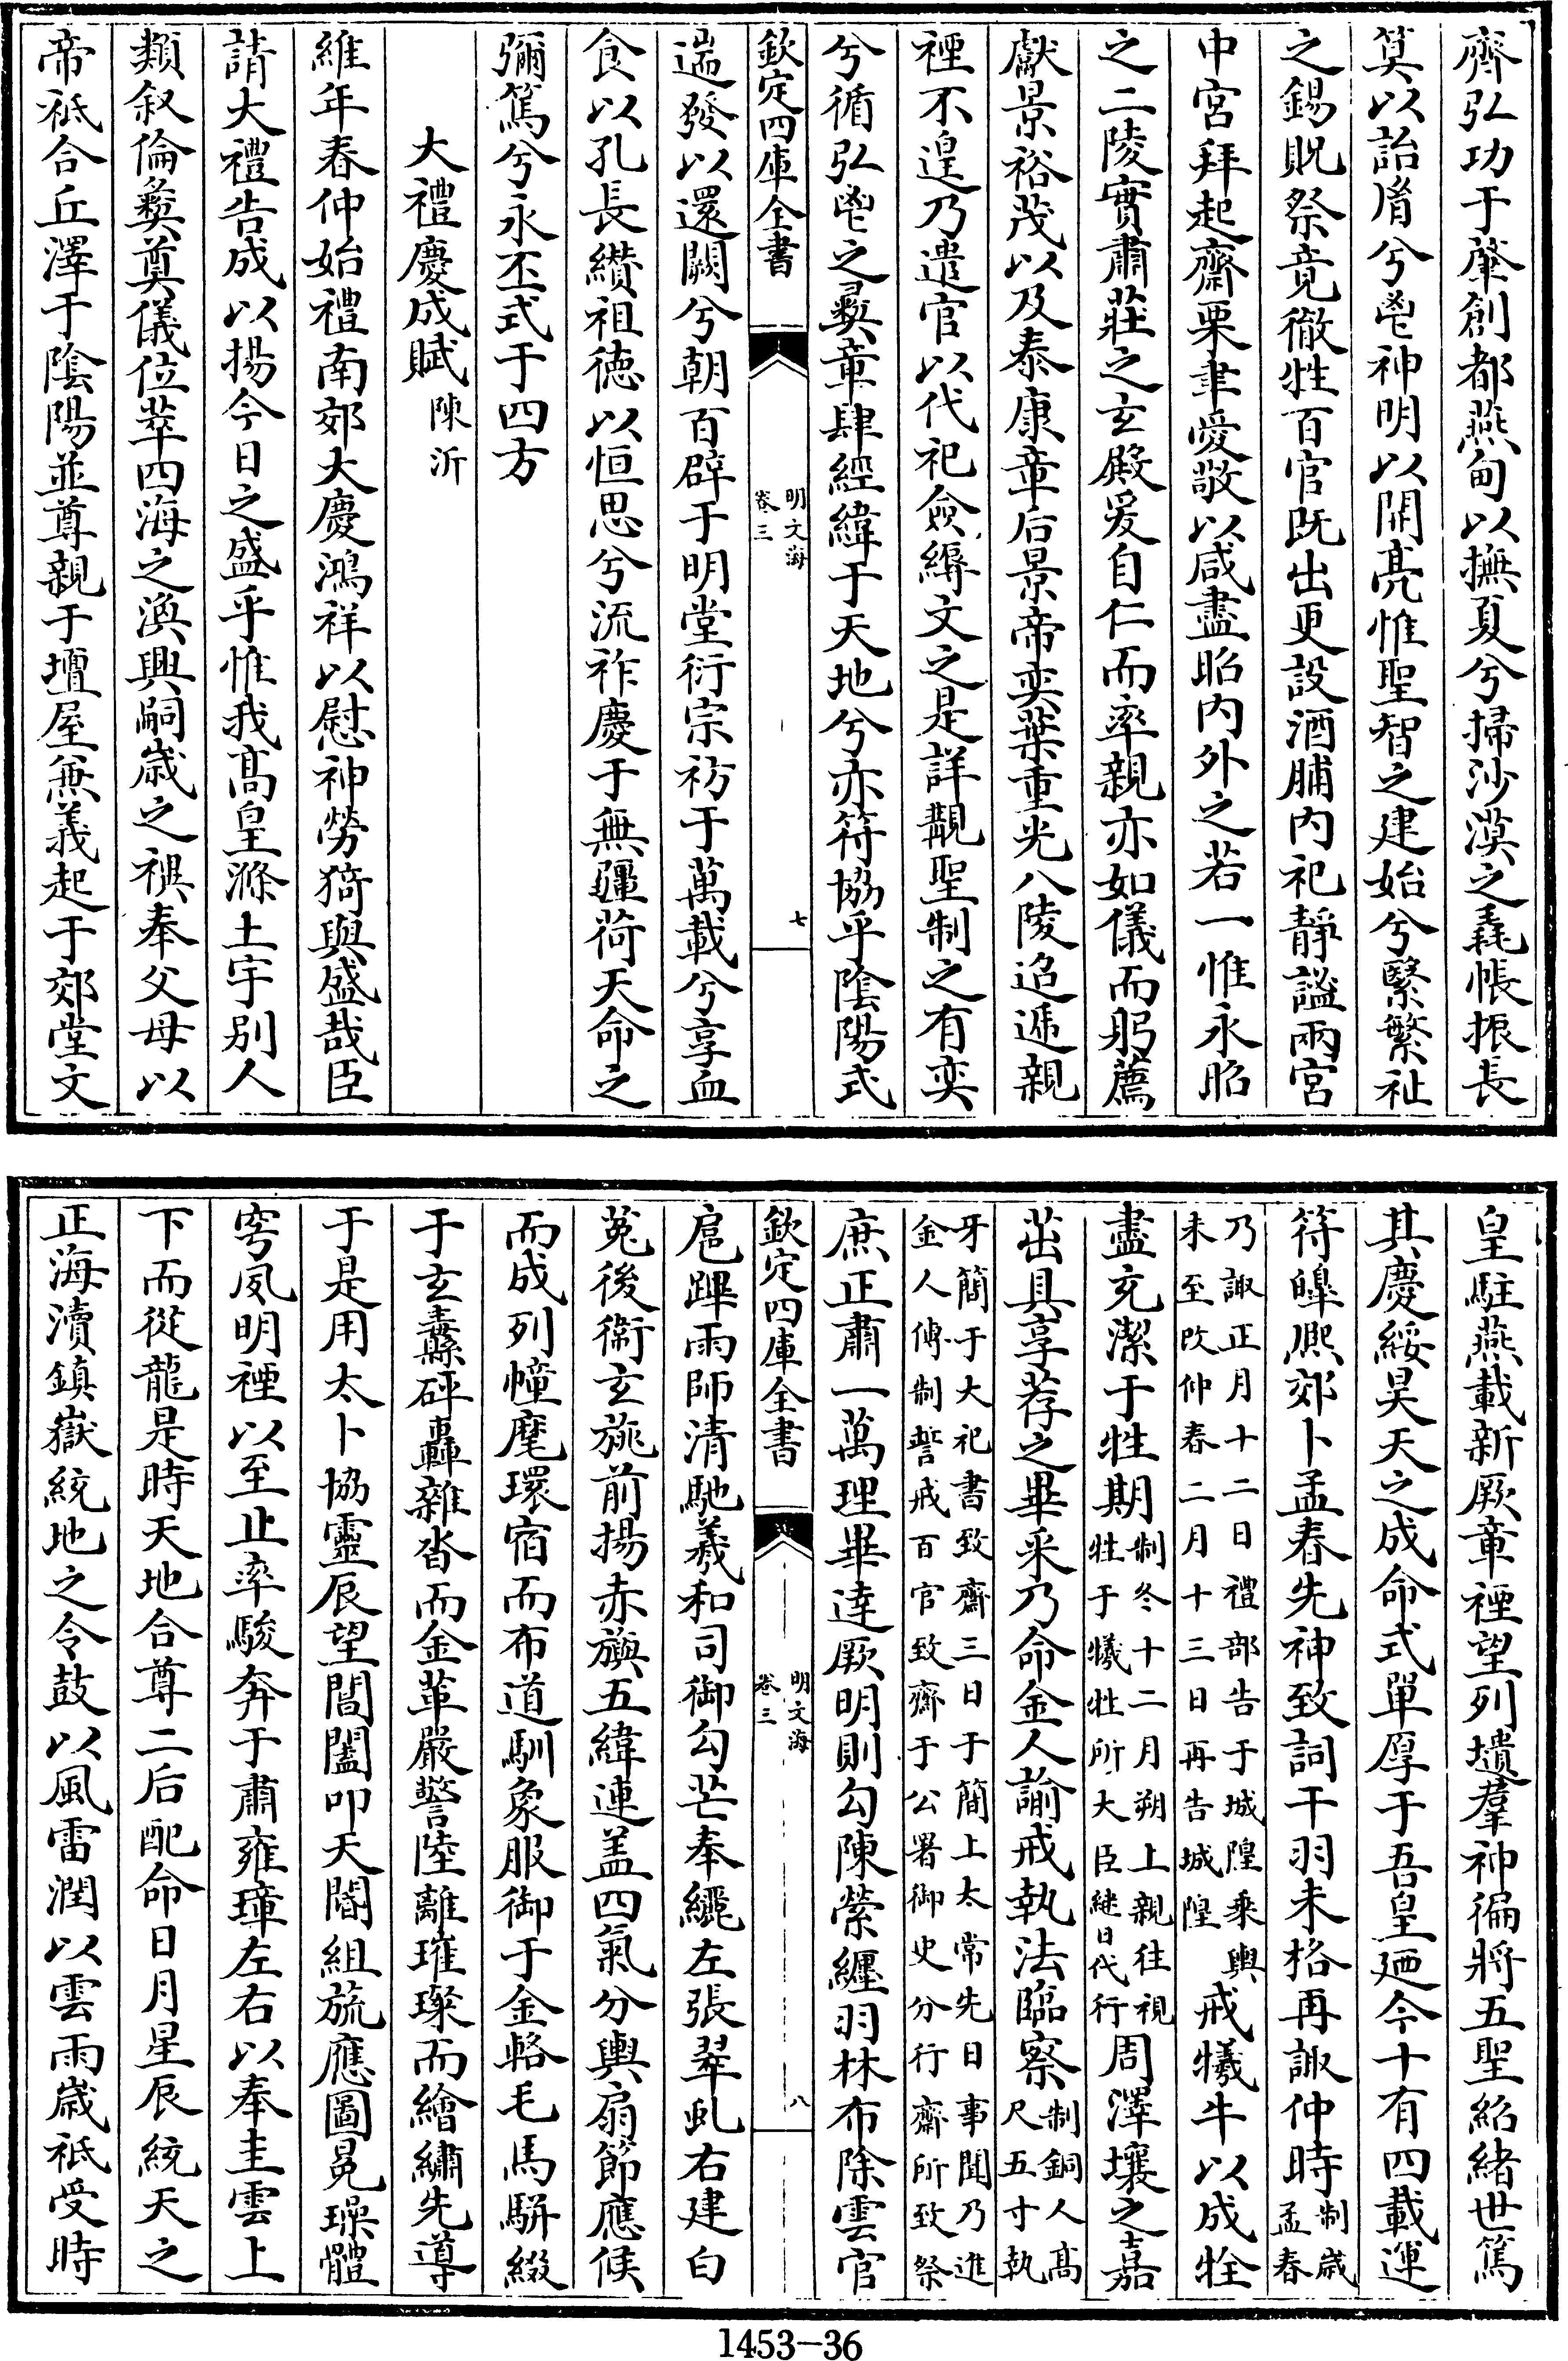 齊弘功于肇創都燕甸以撫夏兮掃沙漠之毳帳振長
筭以詒胤兮鬯神明以開亮惟聖智之建始兮緊繁祉
之錫貺祭竟徹牲百官既出更設酒脯内祀靜謐兩宮
中宮拜起齋栗聿愛敬以咸盡昭内外之若一惟永昭
之二陵實肅莊之玄殿爰自仁而率親亦如儀而躬薦
獻景裕茂以及泰康章后景帝奕葉重光八陵迢遞親
禋不遑乃遣官以代祀僉縟文之是詳覯聖制之有奕
兮循弘鬯之彛章肆經緯于天地兮亦符協乎陰陽式
欽定四庫全書
明文海
卷三
七
遄發以還闕兮朝百辟于明堂衍宗祊于萬載兮享血
食以孔長纘祖徳以恒思兮流祚慶于無疆荷天命之
彌篤兮永丕式于四方
大禮慶成賦 陳沂
維年春仲始禮南郊大慶鴻祥以慰神勞猗與盛哉臣
請大禮告成以揚今日之盛乎惟我髙皇滌土宇别人
類叙倫彜奠儀位萃四海之渙興嗣歳之禩奉父母以
帝祗合丘澤于陰陽並尊親于壇屋兼義起于郊堂文
皇駐燕載新厥章禋望列壝羣神徧將五聖紹緒世篤
其慶綏昊天之成命式單厚于吾皇廼今十有四載運
符皥熈郊卜孟春先神致詞干羽未格再諏仲時制歳孟春
乃諏正月十二日禮部告于城隍乘輿未至改仲春二月十三日再告城隍戒犧牛以成牷
盡充潔于牲期制冬十二月朔上親往視牲于犧牲所大臣継日代行周澤壤之嘉
茁具享荐之畢采乃命金人諭戒執法臨察制銅人髙尺五寸執
牙簡于大祀書致齋三日于簡上太常先日事聞乃進金人傳制誓戒百官致齋于公署御史分行齋所致祭
庶正肅一萬理畢達厥明則勾陳縈纒羽林布除雲官
欽定四庫全書
明文海
卷三
八
扈蹕雨師清馳羲和司御勾芒奉繩左張翠虬右建白
菟後衞玄旐前揚赤旟五緯連盖四氣分輿扇節應候
而成列幢麾環宿而布道馴象服御于金輅毛馬騈綴
于玄纛砰轟雜沓而金革嚴警陸離璀璨而繪繡先導
于是用太卜協靈辰望閶闔叩天閽組旒應圖冕璪體
穹夙明禋以至止率駿奔于肅雍璋左右以奉圭雲上
下而從龍是時天地合尊二后配命日月星辰統天之
正海瀆鎮嶽統地之令鼓以風雷潤以雲雨歳祗受時
1453-36